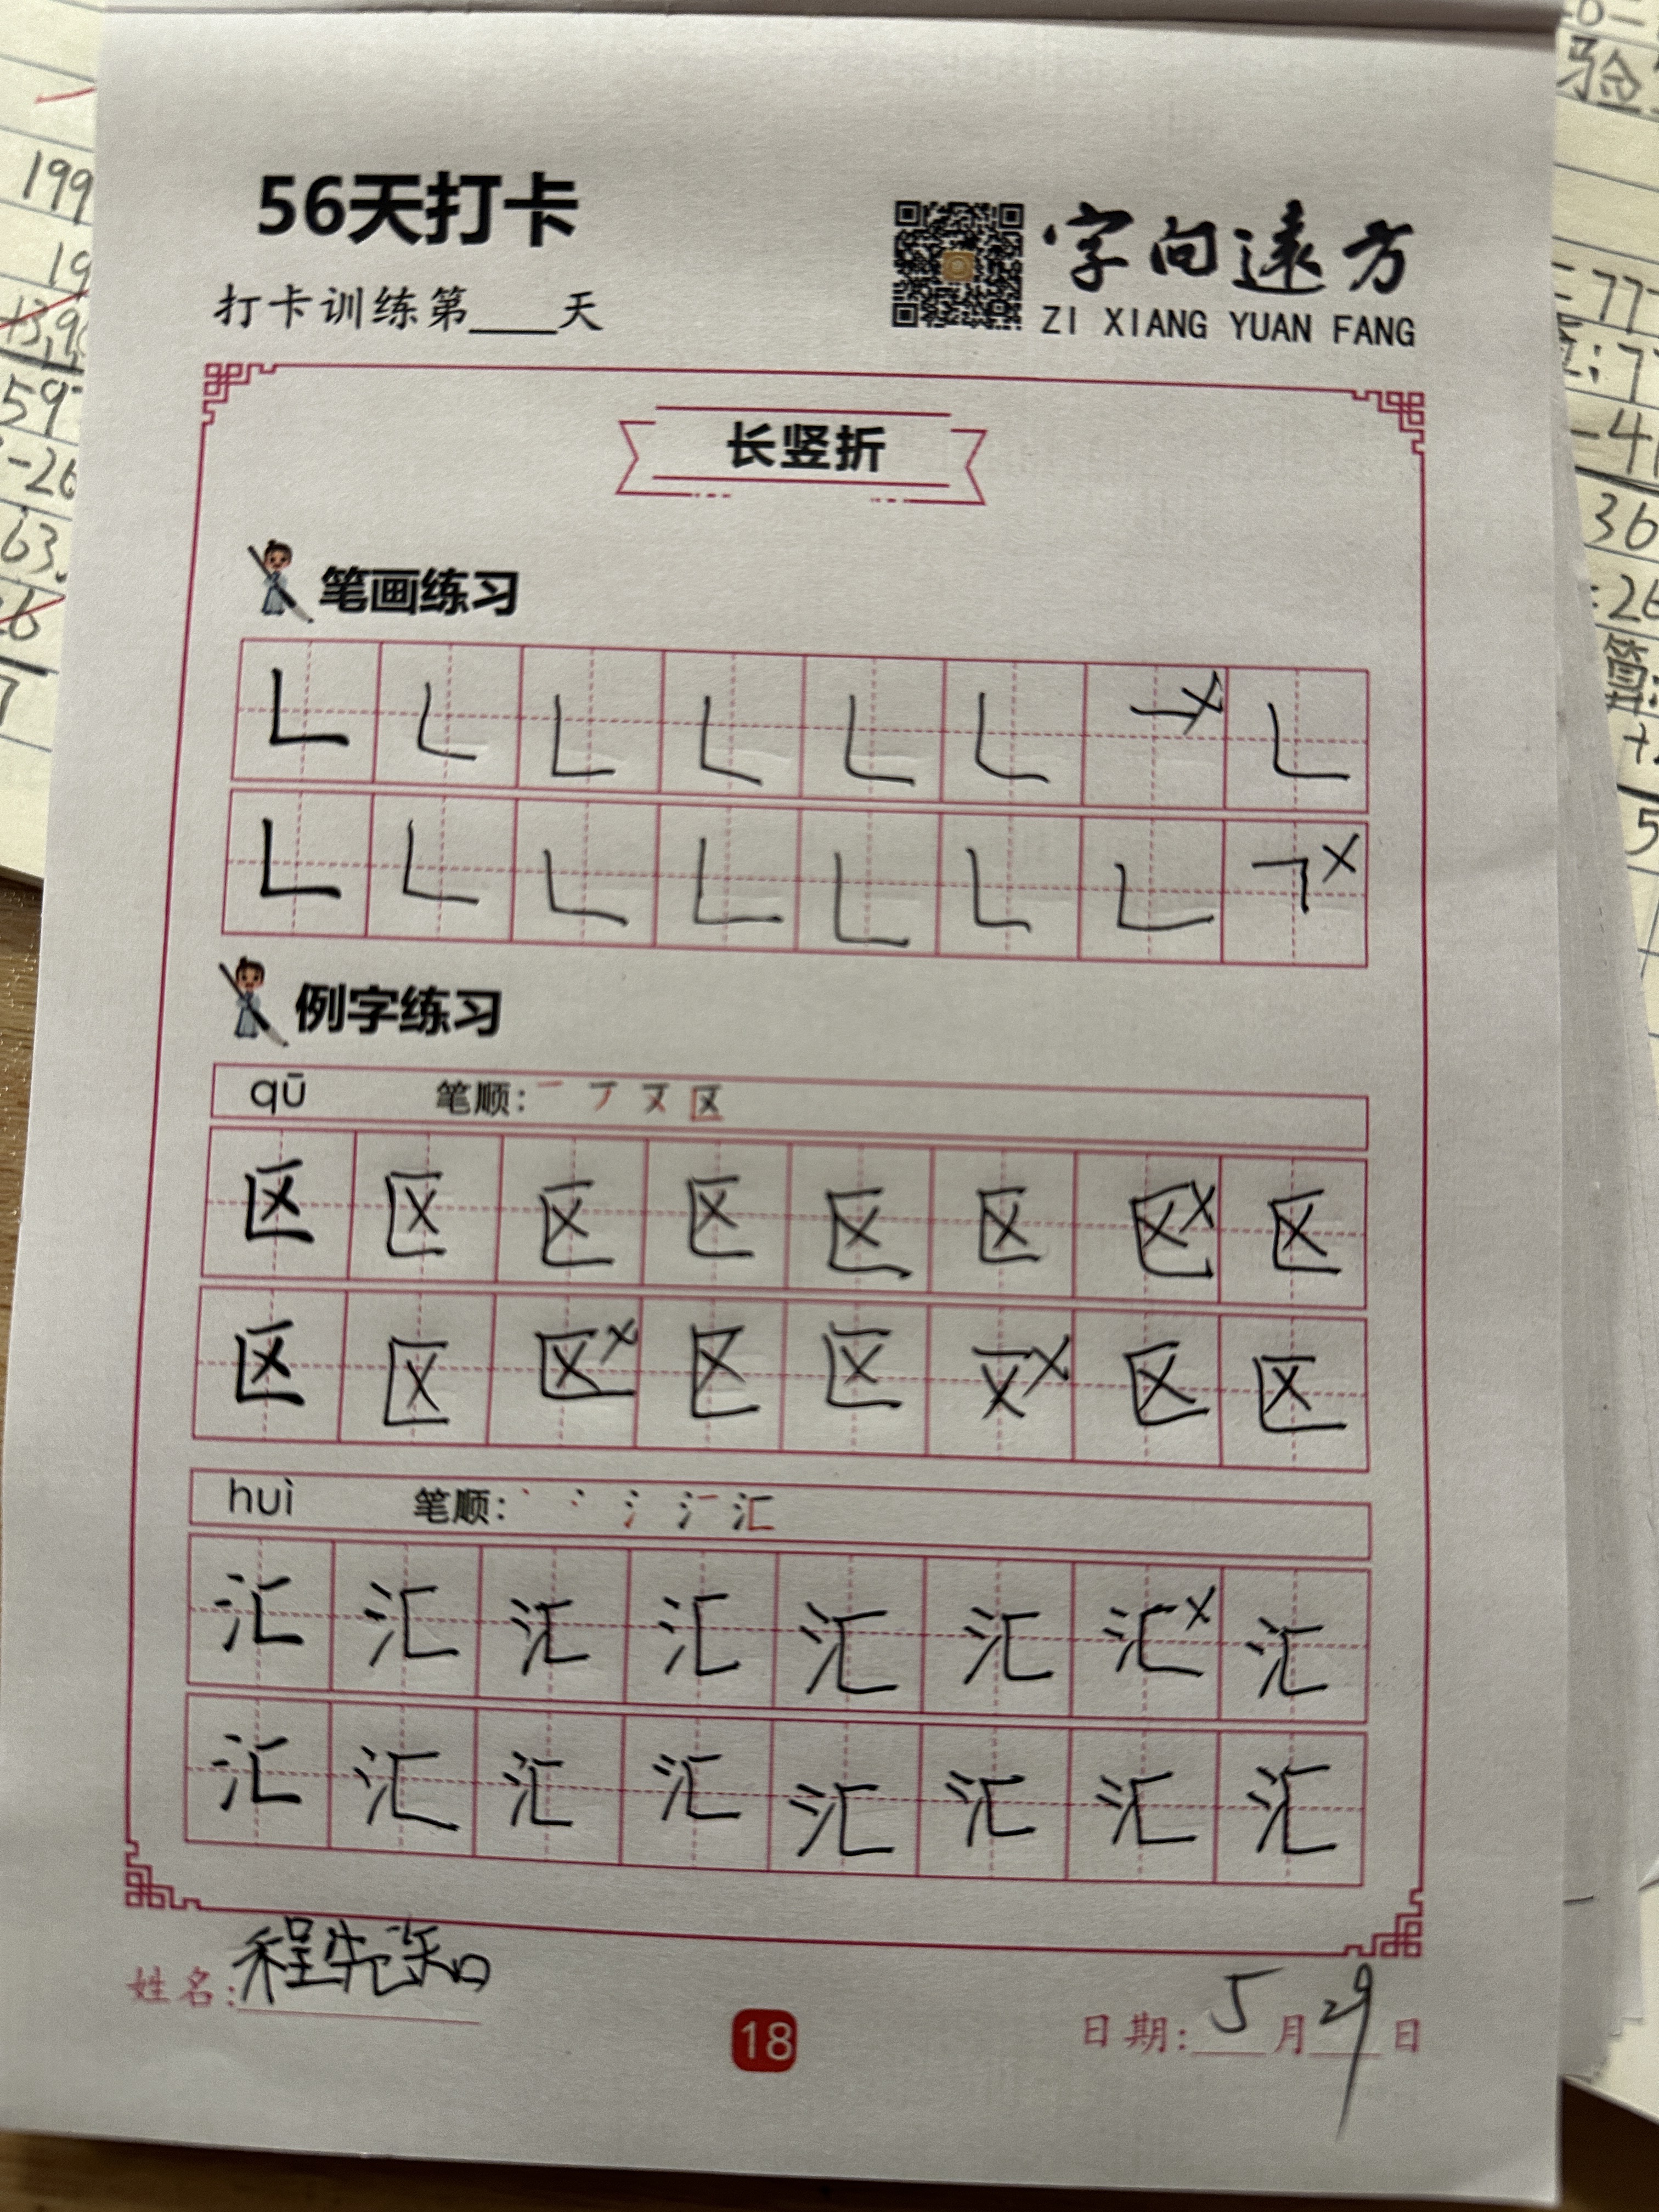 56天打卡
打卡训练第____天
字向遠方
ZI XIANG YUAN FANG
长竖折
笔画练习
例字练习
qū 笔顺: 区
区 区 区 区 区 区 区 区
区 区 区 区 区 区 区
huì 笔顺: 汇
汇 汇 汇 汇 汇 汇 汇 汇
汇 汇 汇 汇 汇 汇 汇 汇
姓名:程先知
18
日期:5月29日
199
19
59
-26
63
7
验
=777
36
=26
5